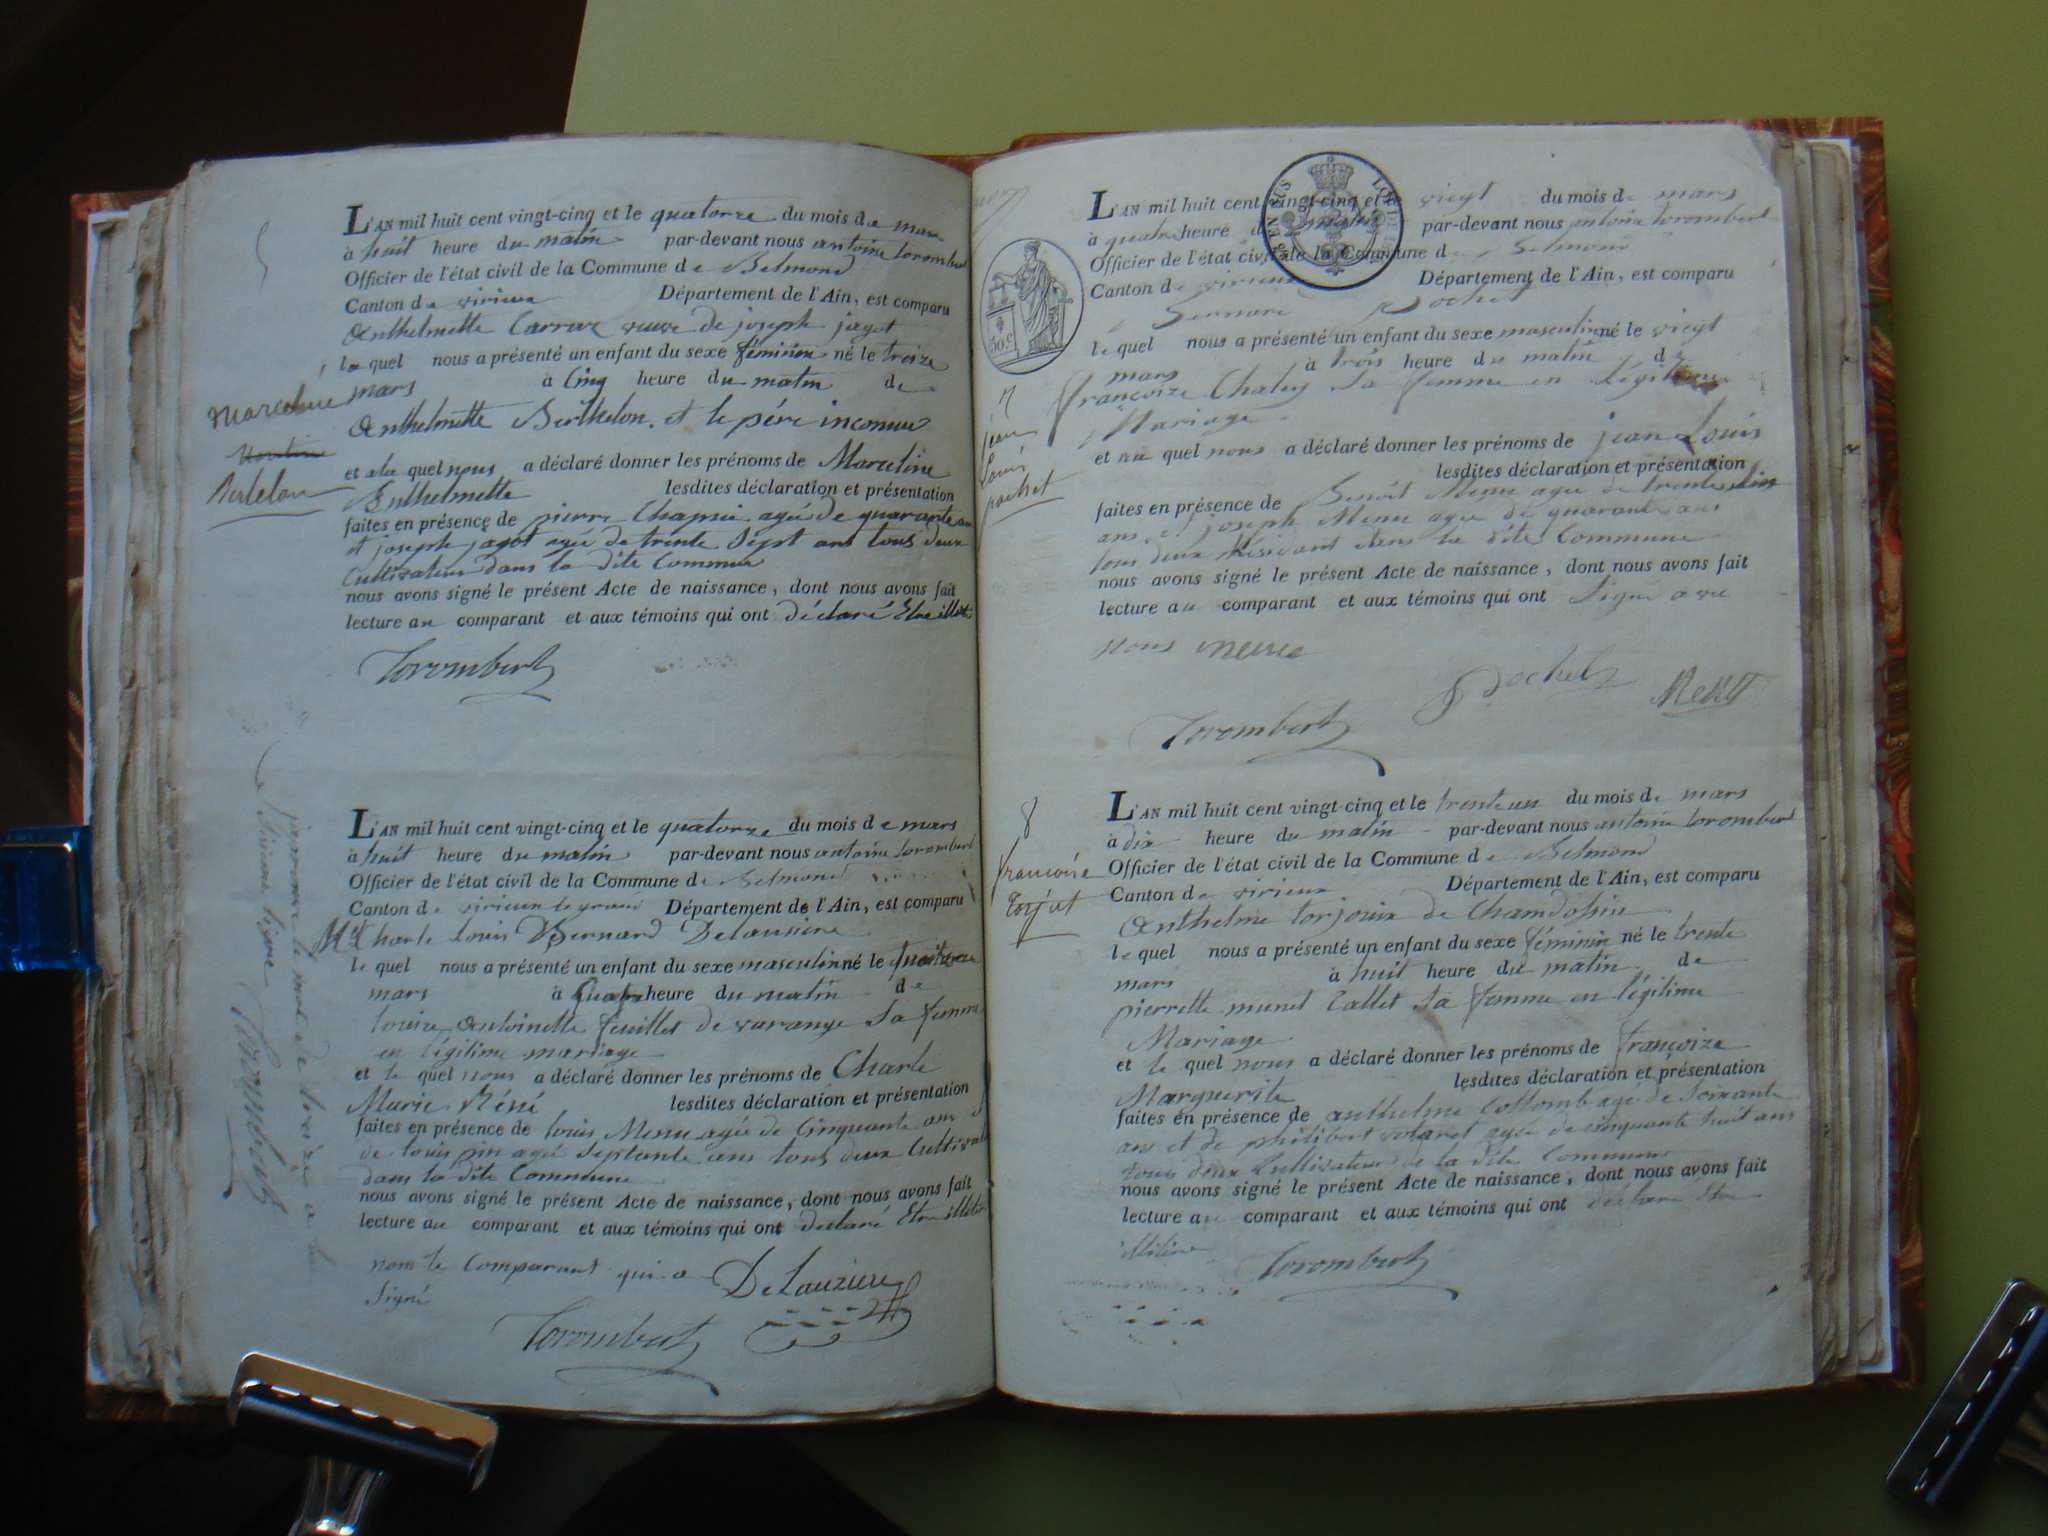 5
L'AN mil huit cent vingt-cinq et le quatorze du mois de mars
à huit heure du matin par-devant nous antoine torombert
Officier de l'état civil de la Commune de Belmond
Canton de virieux Département de l'Ain, est comparu
Anthelmette Carrue veuve de joseph jagot
la quel nous a présenté un enfant du sexe féminin né le treize
mars à Cinq heure du matin de
Anthelmette Berthelon et le père inconnue
et la quel nous a déclaré donner les prénoms de Marceline
Anthelmette lesdites déclaration et présentation
faites en présence de pierre Chapuis agée de quarante an
et joseph jagot agée de trente Sept ans tous deux
Cultivateur dans la dite Commune
nous avons signé le présent Acte de naissance, dont nous avons fait
lecture au comparant et aux témoins qui ont déclaré Etre illité
Torombert
Marceline
Bertelon
L'AN mil huit cent vingt-cinq et le quatorze du mois de mars
à huit heure du matin par-devant nous antoine torombert
Officier de l'état civil de la Commune de Belmond
Canton de virieux le grand Département de l'Ain, est comparu
Mr Charle Louis Bernard Delausiere
le quel nous a présenté un enfant du sexe masculin né le
mars à quatre heure du matin de
louise Antoinette feuillet de varange Sa femme
en légitime mariage
et le quel nous a déclaré donner les prénoms de Charle
Marie Réné lesdites déclaration et présentation
faites en présence de louis Menu agée de Cinquante ans
de louis pin agée Septante ans tous deux Cultivat
dans la dite Commune
nous avons signé le présent Acte de naissance, dont nous avons fait
lecture au comparant et aux témoins qui ont déclaré Etre illité
nom le Comparant qui a DeLauziere
Signé
Torombert
japrouve le mot de treize a la
Sixieme ligne Torombert
L'AN mil huit cent vingt-cinq et le vingt du mois de mars
à quatre heure du matin par-devant nous antoine torombert
Officier de l'état civil de la Commune de Belmond
Canton de virieux Département de l'Ain, est comparu
Bernard Pochet
le quel nous a présenté un enfant du sexe masculin né le vingt
mars à trois heure du matin de
françoize Chaley Sa femme en Légitime
Mariage
et le quel nous a déclaré donner les prénoms de jean Louis
lesdites déclaration et présentation
faites en présence de Benoit Menu agée de trente
ans et joseph Menu agée de quarante ans
tous deux Résidant dans la dite Commune
nous avons signé le présent Acte de naissance, dont nous avons fait
lecture au comparant et aux témoins qui ont Signé avec
nous
Pochet
Torombert
30 C
7
jean
Louis
pochet
L'AN mil huit cent vingt-cinq et le trente un du mois de mars
à dix heure du matin par-devant nous antoine torombert
Officier de l'état civil de la Commune de Belmond
Canton de virieux Département de l'Ain, est comparu
Anthelme torjouix de Chamdossin
le quel nous a présenté un enfant du sexe féminin né le trente
mars à huit heure du matin de
pierrette munet Callet Sa femme en légitime
Mariage
et le quel nous a déclaré donner les prénoms de françoize
Marguerite lesdites déclaration et présentation
faites en présence de anthelme Collomb agé de Soixante
ans et de philibert agée de cinquante huit ans
tous deux Cultivateur de la dite Commune
nous avons signé le présent Acte de naissance, dont nous avons fait
lecture au comparant et aux témoins qui ont déclaré Etre
illitéré
Torombert
8
francoise